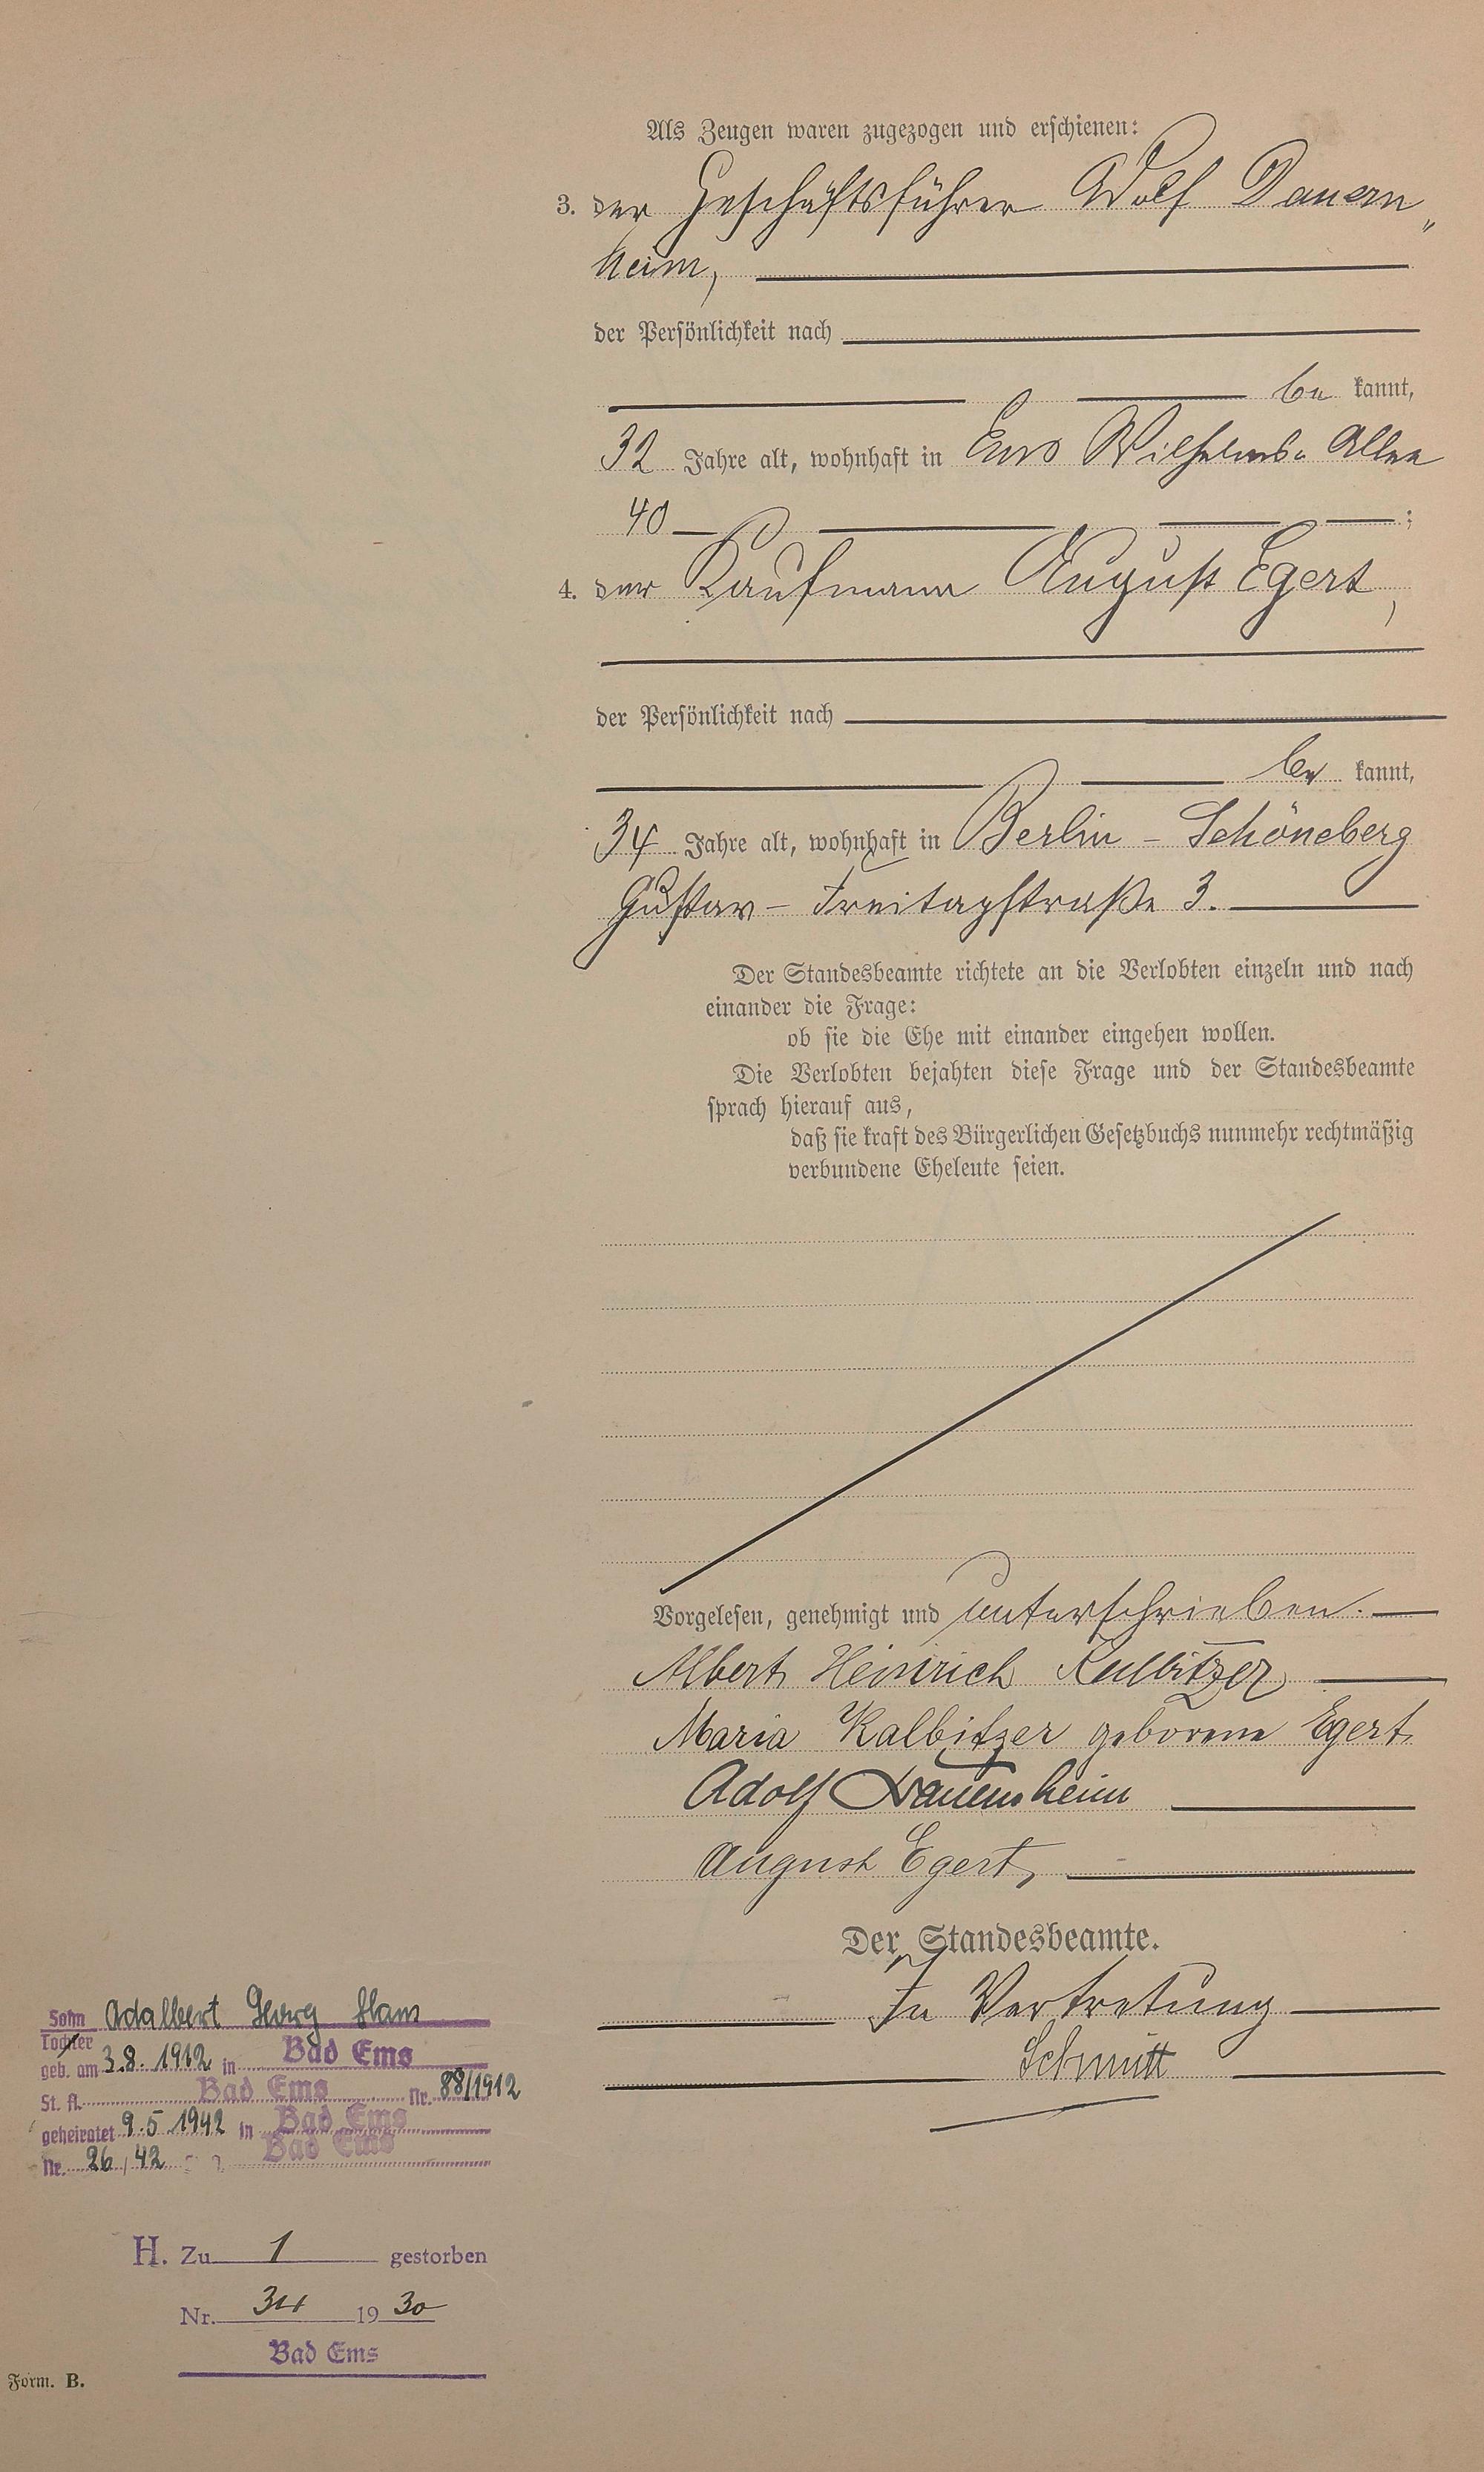 Als Zeugen waren zugezogen und erschienen:
3. der Geschäftsführer Adolf Dauern„
heim,
der Persönlichkeit nach
be kannt,
32 Jahre alt, wohnhaft in Ems Wilhelms„ Allee
40 ;
4. der Kaufmann August Egert,
der Persönlichkeit nach
be kannt,
34 Jahre alt, wohnhaft in Berlin - Schöneberg
Gustav - Freitagstraße 3.
Der Standesbeamte richtete an die Verlobten einzeln und nach
einander die Frage:
ob sie die Ehe mit einander eingehen wollen.
Die Verlobten bejahten diese Frage und der Standesbeamte
sprach hierauf aus,
daß sie kraft des Bürgerlichen Gesetzbuchs nunmehr rechtmäßig
verbundene Eheleute seien.
Vorgelesen, genehmigt und unterschrieben.
Albert Heinrich Kalbitzer
Maria Kalbitzer geborene Egert.
Adolf Dauernheim
August Egert,
Der Standesbeamte.
In Vertretung
Schmitt
Sohn Adalbert Georg Hans
Tochter
geb. am 3.8.1912 in Bad Ems
St. A. Bad Ems Nr. 88/1912
geheiratet 9.5.1942 in Bad Ems
Nr. 26/42 Bad Ems
H. Zu 1 gestorben
Nr. 34 19 30
Bad Ems
Form. B.